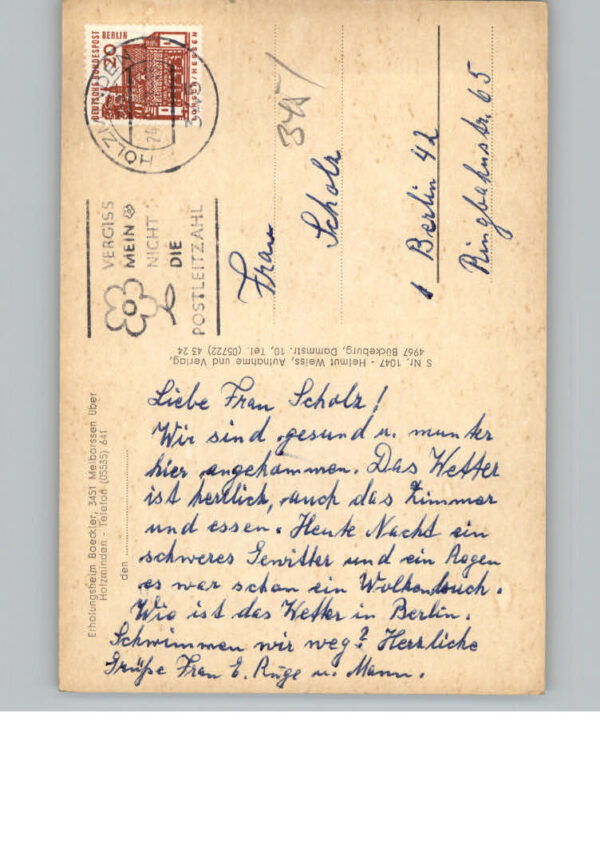 DEUTSCHE BUNDESPOST BERLIN
20
LORSCH/HESSEN
HOLZMINDEN
345
VERGISS
MEIN
NICHT
DIE
POSTLEITZAHL
Frau
Scholz
1 Berlin 42
Ringbahnstr. 65
S Nr. 1047 - Helmut Weiss, Aufnahme und Verlag,
4967 Bückeburg, Dammstr. 10, Tel. (05722) 45 24
Erholungsheim Boeckler, 3451 Meiborssen über
Holzminden - Telefon (05535) 641
den
Liebe Frau Scholz!
Wir sind gesund u. munter
hier angekommen. Das Wetter
ist herrlich, auch das Zimmer
und essen. Heute Nacht ein
schweres Gewitter und ein Regen
es war schon ein Wolkenbruch.
Wie ist das Wetter in Berlin.
Schwimmen wir weg? Herzliche
Grüße Frau E. Ruge u. Mann.